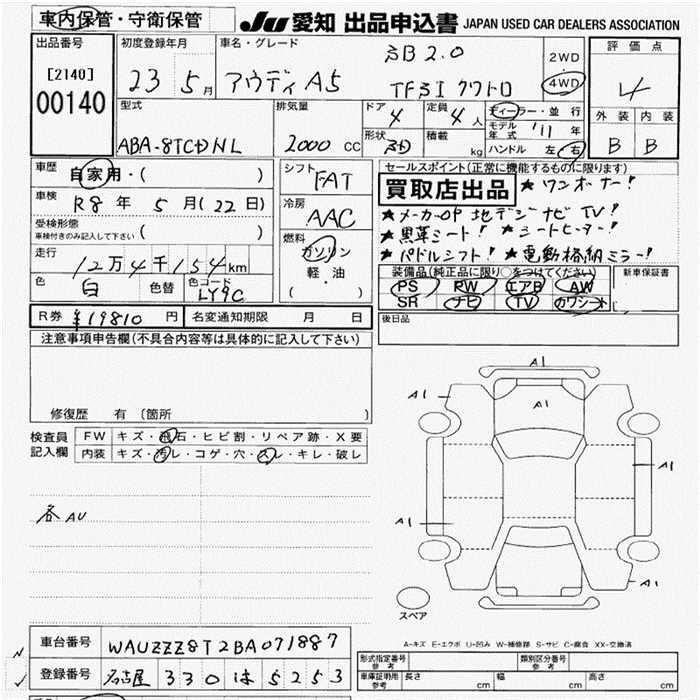 車内保管・守衛保管
JU 愛知 出品申込書 JAPAN USED CAR DEALERS ASSOCIATION
出品番号 [2140] 00140
初度登録年月 23 年 5 月
車名・グレード アウディ A5 5B 2.0 TFSI クワトロ
2WD 4WD
評価点 4
型式 ABA-8TCDNL
排気量 2000 CC
ドア 4
定員 4 人
ディーラー・並行
モデル年式 '11 年
形状 3D
積載 kg
ハンドル 左 右
外装 内装
B B
車歴 自家用・( )
シフト FAT
セールスポイント(正常に機能するものに限ります)
買取店出品 ★ワンオーナー!
車検 R8 年 5 月 (22 日)
冷房 AAC
★メーカーOP 地デジナビ TV!
受検形態 車検付きのみ記入して下さい ( )
★黒革シート! ★シートヒーター!
燃料 ガソリン 軽・油 ( )
★パドルシフト! ★電動格納ミラー!
走行 12万4千154km
装備品(純正品に限り○をつけてください) 新車保証書
色 白 色替 色コード LY9C
PS PW エアB AW
SR ナビ TV カワシート
R券 ¥19810 円 名変通知期限 月 日
後日品
注意事項申告欄(不具合内容等は具体的に記入して下さい)
修復歴 有 (箇所 )
検査員記入欄
FW キズ・飛石・ヒビ割・リペア跡・X要
内装 キズ・汚レ・コゲ・穴・スレ・キレ・破レ
各AU
A1
A1
A1
A1
A1
A1
スペア
A-キズ E-エクボ U-凹み W-補修跡 S-サビ C-腐食 XX-交換済
車台番号 WAUZZZ8T2BA071887
登録番号 名古屋 330 は 5253
形式指定番号 参考 類別区分番号 参考
車庫証明用 参考 長さ cm 幅 cm 高さ cm